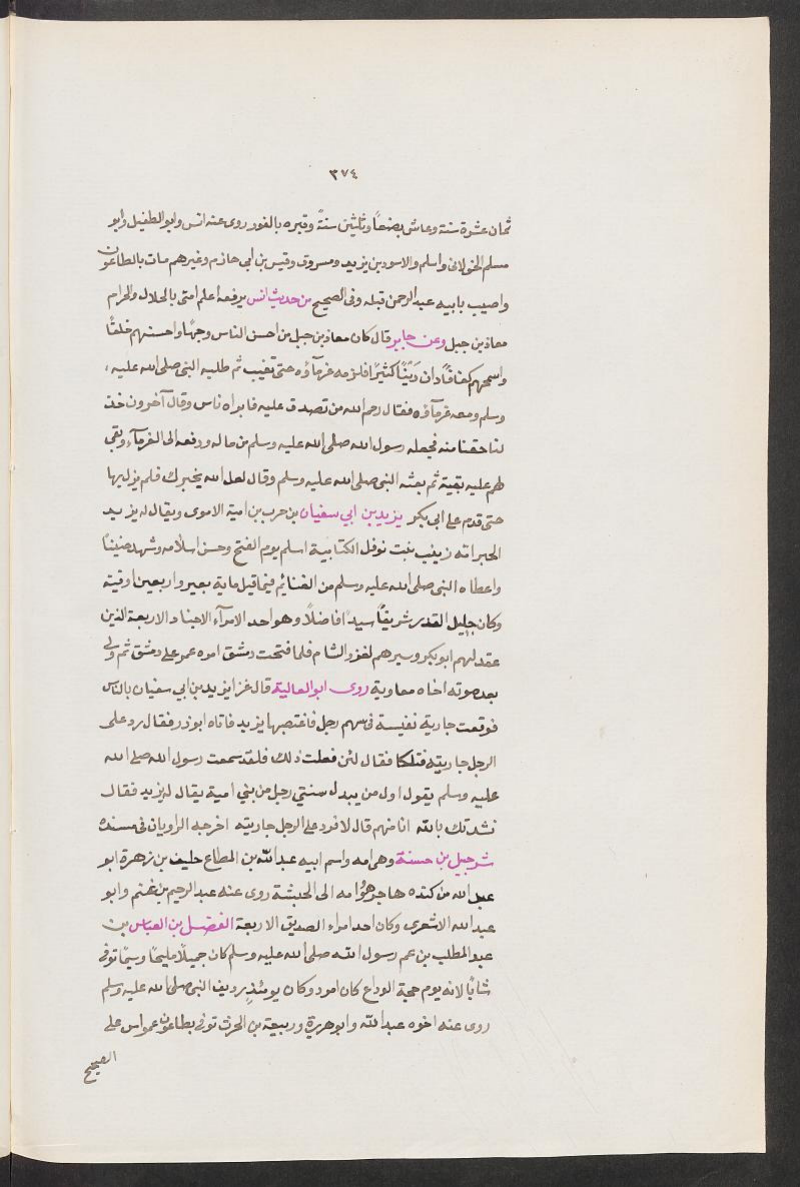 ٣٧٤
ثمان عشرة سنة وعاش بضعاً وثلثين سنةً وقبره بالغور روى عنه انس وابو الطفيل وابو
مسلم الخولانى واسلم والاسود بن يزيد ومسروق وقيس بن ابى حازم وغيرهم مات بالطاعون
واصيب بابيه عبد الرحمن قبله وفى الصحيح من حديث انس يرفعه اعلم امتى بالحلال والحرام
معاذ بن جبل وعن جابر قال كان معاذ بن جبل من احسن الناس وجهًا واحسنهم خلقًا
واسمحهم كفا فادان دَيْنًا كثيرًا فلزمه غرمآؤه حتى تغيب ثم طلبه النبى صلى الله عليه
وسلم ومعه غرمآؤه فقال رحم الله من تصدق عليه فابراه ناس وقال آخرون خذ
لنا حقنا منه فجعله رسول الله صلى الله عليه وسلم من ماله ودفعه الى الغرمآء وبقى
لهم عليه بقية ثم بعثه النبى صلى الله عليه وسلم وقال لعل الله يجبرك فلم يزل بها
حتى قدم على ابى بكر يزيد بن ابي سفيان بن حرب بن امية الاموى ويقال له يزيد
الخير امه زينب بنت نوفل الكتابية اسلم يوم الفتح وحسن اسلامه وشهد حنينًا
واعطاه النبى صلى الله عليه وسلم من الغنائم فيما قيل ماية بعير واربعين اوقية
وكان جليل القدر شريفًا سيدًا فاضلًا وهو احد الامرآء الاجناد الاربعة الذين
عقد لهم ابو بكر وسيرهم لغزو الشام فلما فتحت دمشق امره عمر على دمشق ثم ولى
بعد موته اخاه معاوية روى ابو العالية قال غزا يزيد بن ابي سفيان بالناس
فوقعت جارية نفيسة فى سهم رجل فاغتصبها يزيد فاتاه ابوذر فقال رد على
الرجل جاريته فتلكا فقال لئن فعلت ذلك فلقد سمعت رسول الله صلى الله
عليه وسلم يقول اول من يبدل سنتي رجل من بني امية يقال له يزيد فقال
نشدتك بالله انا منهم قال لا فرد على الرجل جاريته اخرجه الرويان فى مسنده
شرحبيل بن حسنة وهى امه واسم ابيه عبد الله بن المطاع حليف بن زهرة ابو
عبد الله من كنده هاجر هُوَ امه الى الحبشة روى عنه عبد الرحيم بن غنم وابو
عبد الله الاشعرى وكان احد امراء الصديق الاربعة الفضل بن العباس بن
عبد المطلب بن عم رسول الله صلى الله عليه وسلم كان جميلًا مليحًا وسيمًا توفى
شابًا لانه يوم حجة الوداع كان امرد وكان يومئذٍ رديف النبى صلى الله عليه وسلم
روى عنه اخوه عبد الله وابو هريرة وربيعة بن الحرث توفى بطاعون عمواس على
الصحيح